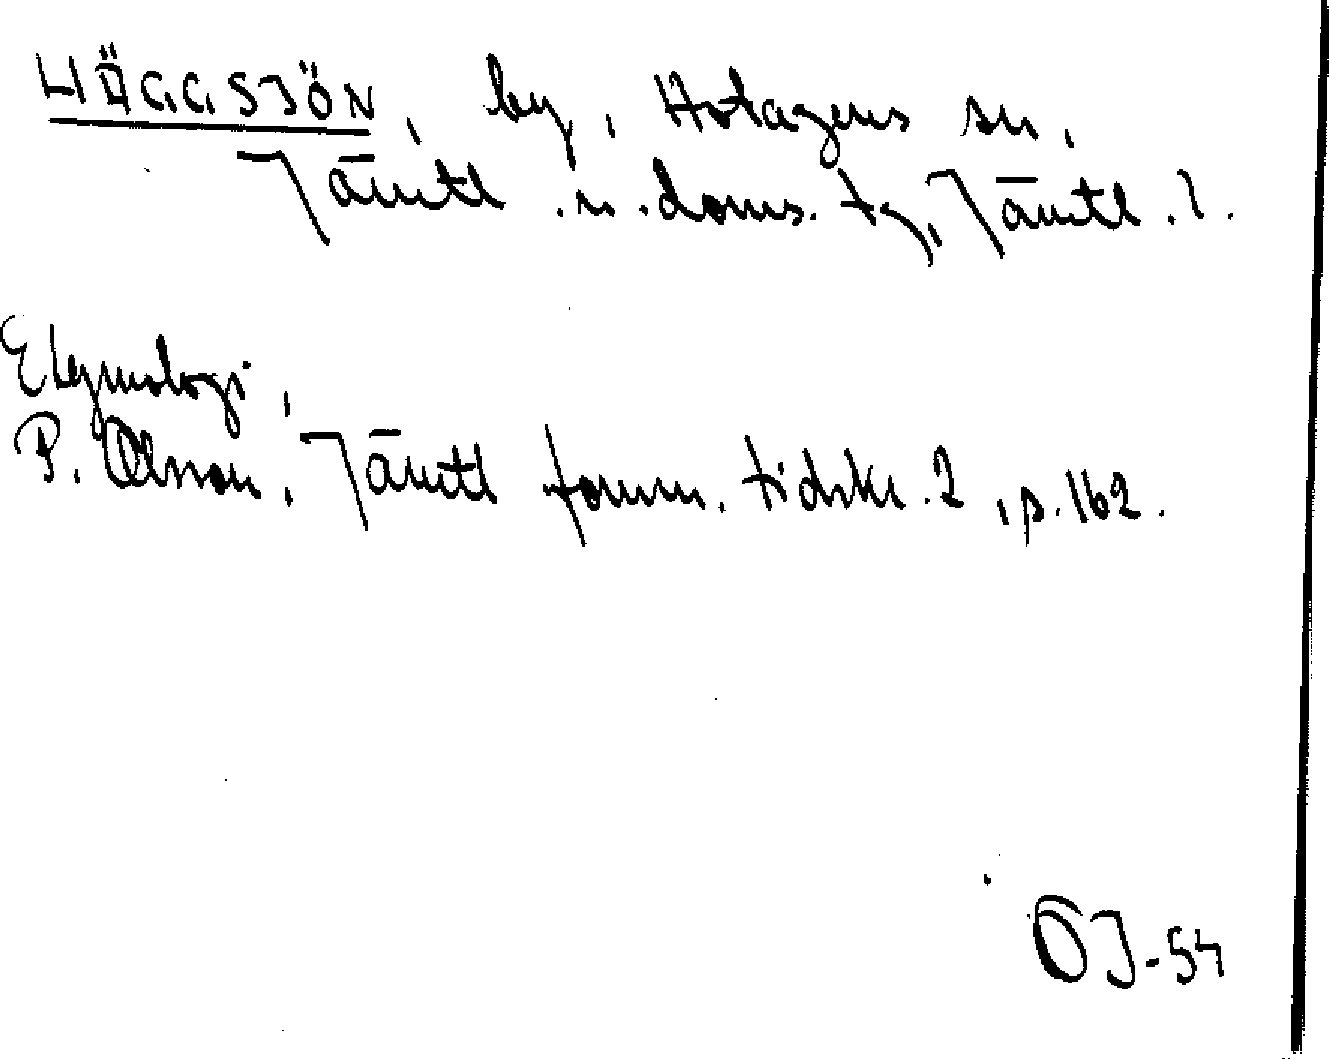 HÄGGSJÖN, by, Hotagens sn,
Jämtl. n. doms. tg, Jämtl. l.
Etymologi,
P. Olsson, Jämtl fornm. tidskr. 2, s. 162.
ÖJ-54